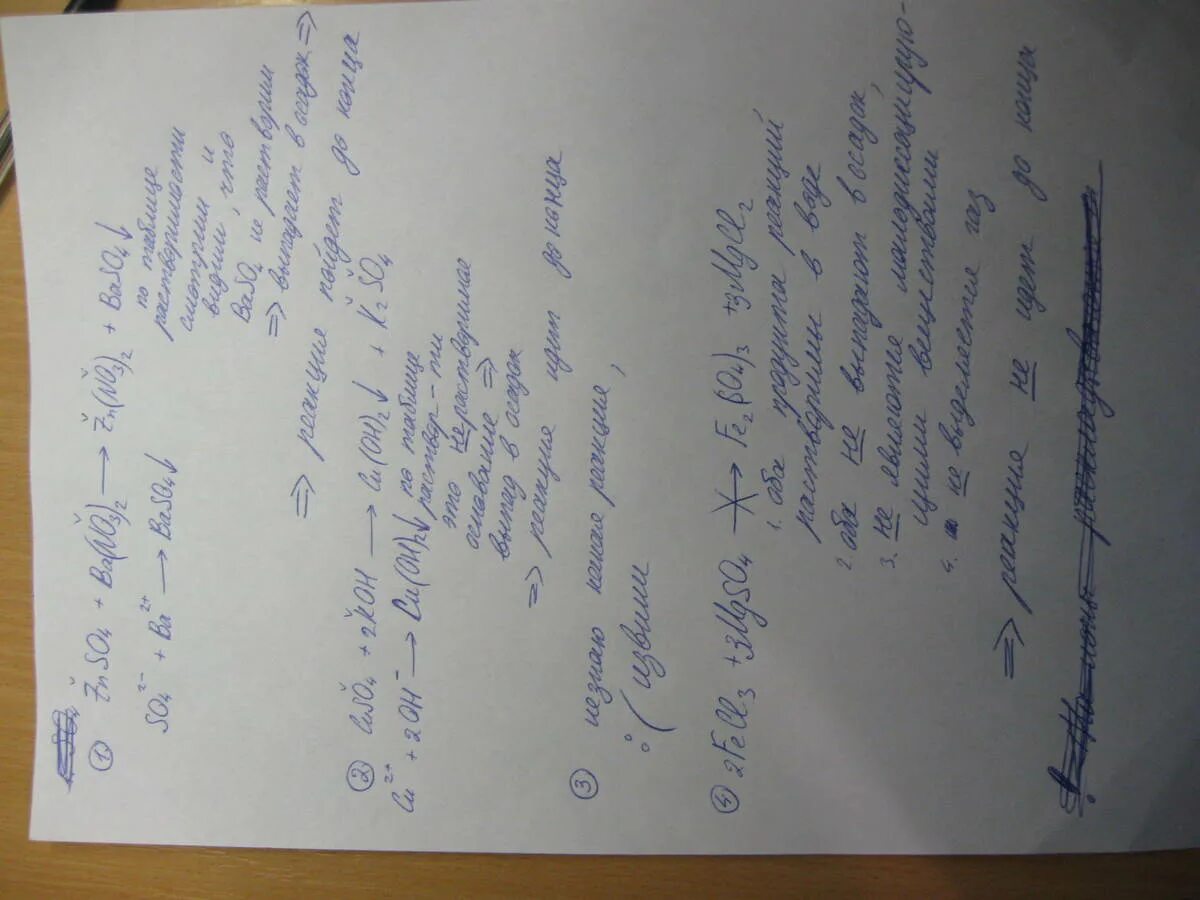 ① ZnSO₄ + Ba(NO₃)₂ → Zn(NO₃)₂ + BaSO₄↓
SO₄²⁻ + Ba²⁺ → BaSO₄↓
по таблице
растворимости
смотрим и
видим, что
BaSO₄ не растворим
⇒ выпадает в осадок ⇒
⇒ реакция пойдет до конца
② CuSO₄ + 2KOH → Cu(OH)₂↓ + K₂SO₄
Cu²⁺ + 2OH⁻ → Cu(OH)₂↓
по таблице
раствор-ти
это нерастворимое
основание ⇒
выпад в осадок
⇒ реакция идит до конца
③ незнаю какая реакция,
:( извини
④ 2FeCl₃ + 3MgSO₄ ⇸ Fe₂(SO₄)₃ + 3MgCl₂
1. оба продукта реакций
растворимы в воде
2. оба не выпадают в осадок,
3. не являются малодиссоциирую-
щими веществами
4. не выделяется газ
⇒ реакция не идет до конца